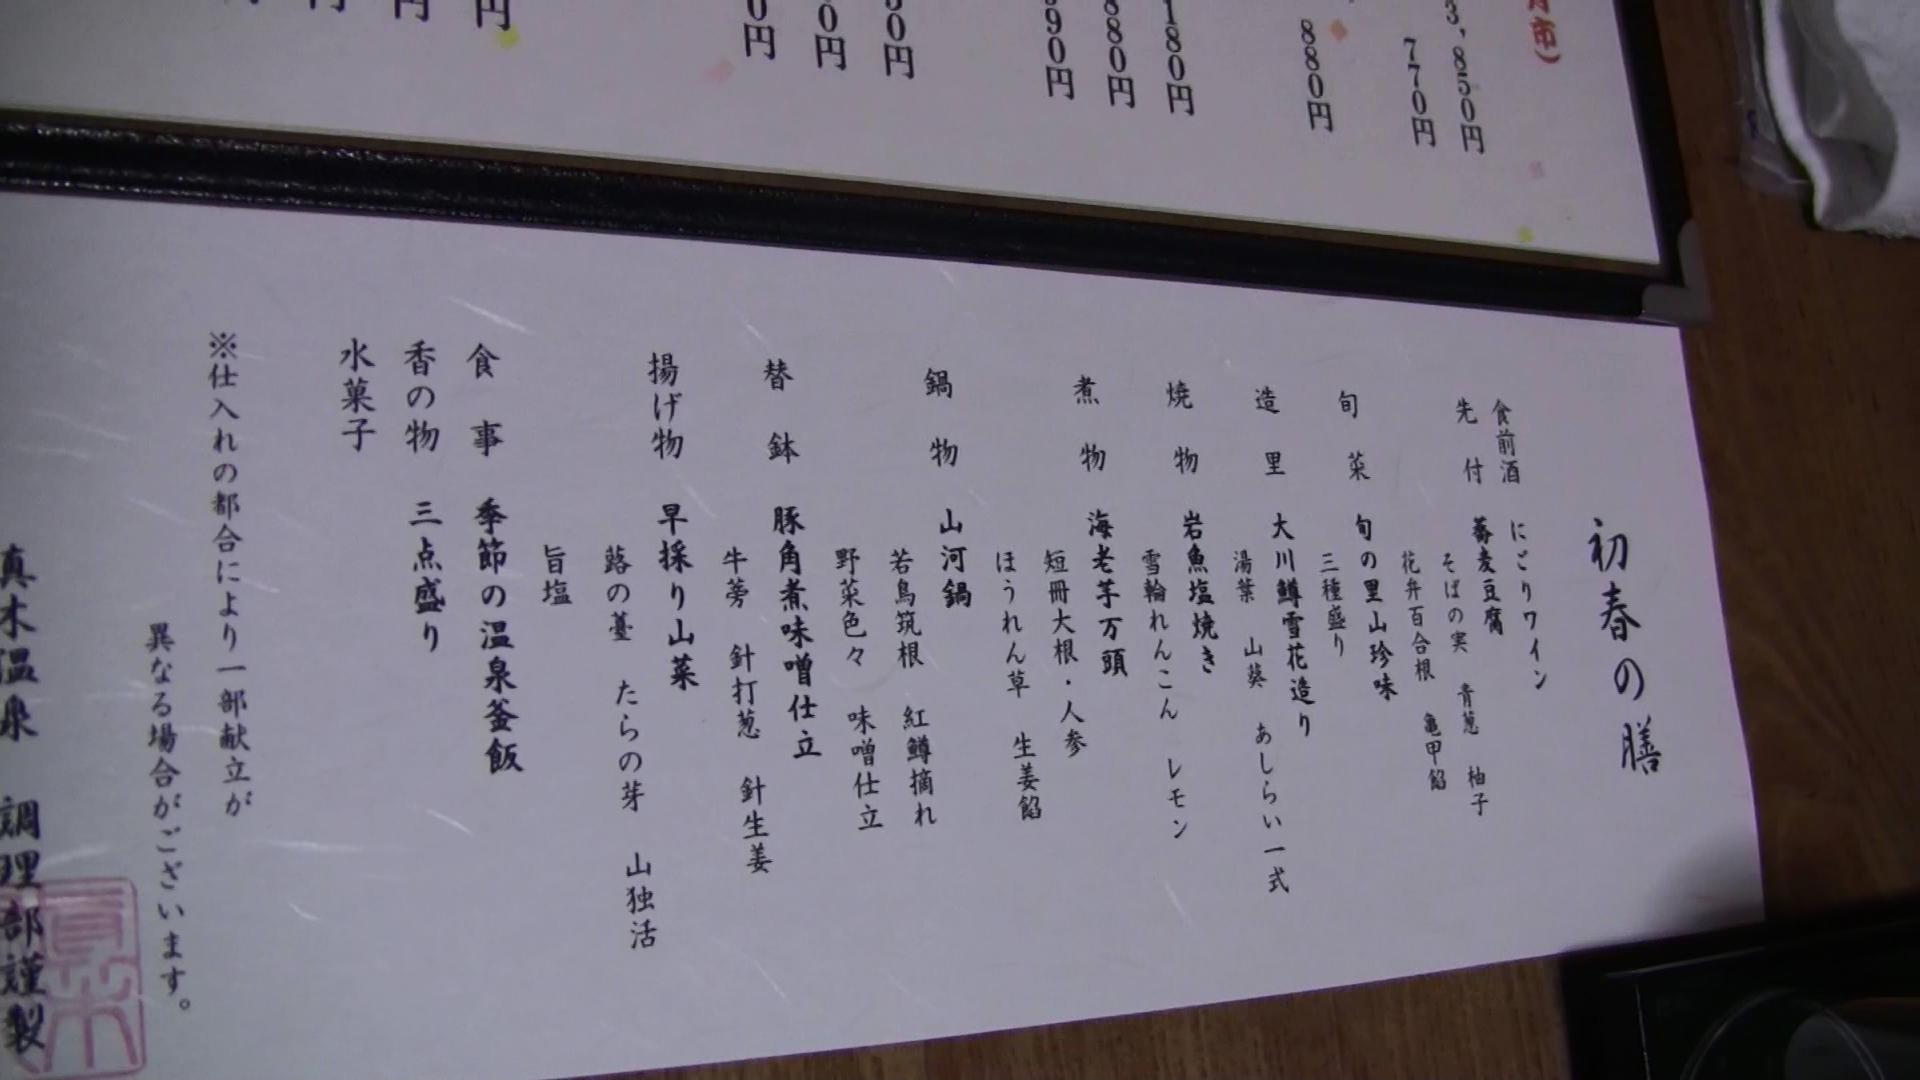 3,850円
770円
880円
180円
880円
90円
0円
0円
0円
円
円
初春の膳
食前酒 にごりワイン
先付 蕎麦豆腐
そばの実 青葱 柚子
花弁百合根 亀甲餡
旬菜 旬の里山珍味
三種盛り
造里 大川鱒雪花造り
湯葉 山葵 あしらい一式
焼物 岩魚塩焼き
雪輪れんこん レモン
煮物 海老芋万頭
短冊大根・人参
ほうれん草 生姜餡
鍋物 山河鍋
若鳥筑根 紅鱒摘れ
野菜色々 味噌仕立
替鉢 豚角煮味噌仕立
牛蒡 針打葱 針生姜
揚げ物 早採り山菜
蕗の薹 たらの芽 山独活
旨塩
食事 季節の温泉釜飯
香の物 三点盛り
水菓子
※仕入れの都合により一部献立が
異なる場合がございます。
真木温泉 調理部謹製
真木